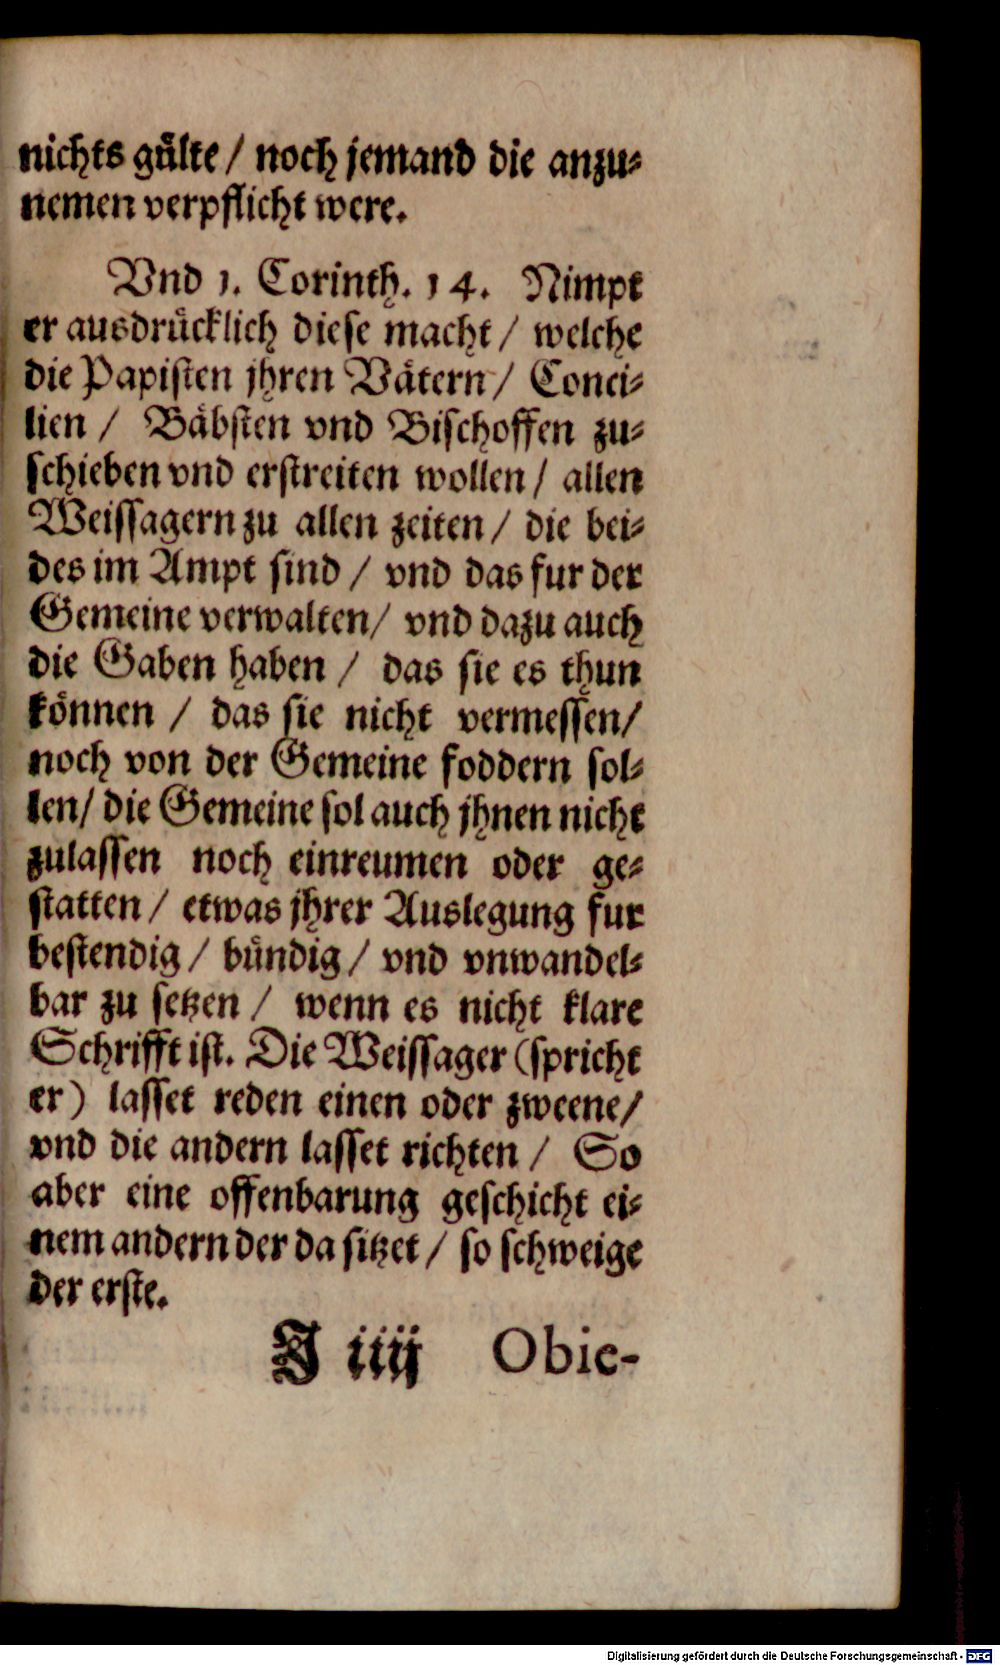 nichts gülte / noch jemand die anzu-
nemen verpflicht were.
Vnd 1. Corinth. 14. Nimpt
er ausdrücklich diese macht / welche
die Papisten jhren Vätern / Conci-
lien / Bäbsten vnd Bischoffen zu-
schieben vnd erstreiten wollen / allen
Weissagern zu allen zeiten / die bei-
des im Ampt sind / vnd das fur der
Gemeine verwalten / vnd dazu auch
die Gaben haben / das sie es thun
können / das sie nicht vermessen /
noch von der Gemeine foddern sol-
len / die Gemeine sol auch jhnen nicht
zulassen noch einreumen oder ge-
statten / etwas jhrer Auslegung fur
bestendig / bündig / vnd vnwandel-
bar zu setzen / wenn es nicht klare
Schrifft ist. Die Weissager (spricht
er) lasset reden einen oder zweene /
vnd die andern lasset richten / So
aber eine offenbarung geschicht ei-
nem andern der da sitzet / so schweige
der erste.
J iiij Obie-
Digitalisierung gefördert durch die Deutsche Forschungsgemeinschaft - DFG